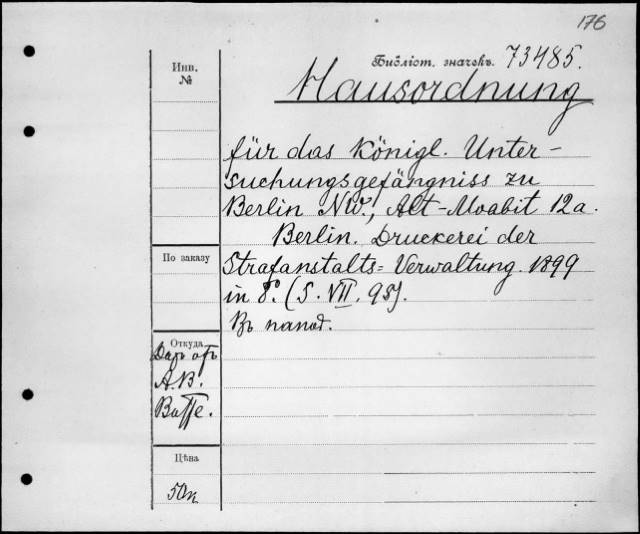 176
Библіот. значекъ. 73485.
Инв.
№
Hausordnung
für das Königl. Unter-
suchungsgefängniss zu
Berlin NW., Alt-Moabit 12a.
Berlin. Druckerei der
Strafanstalts=Verwaltung. 1899
По заказу
in 8°. (S. VII. 95).
Въ папод.
Откуда
Даръ отъ
А.В.
Цѣна
50к